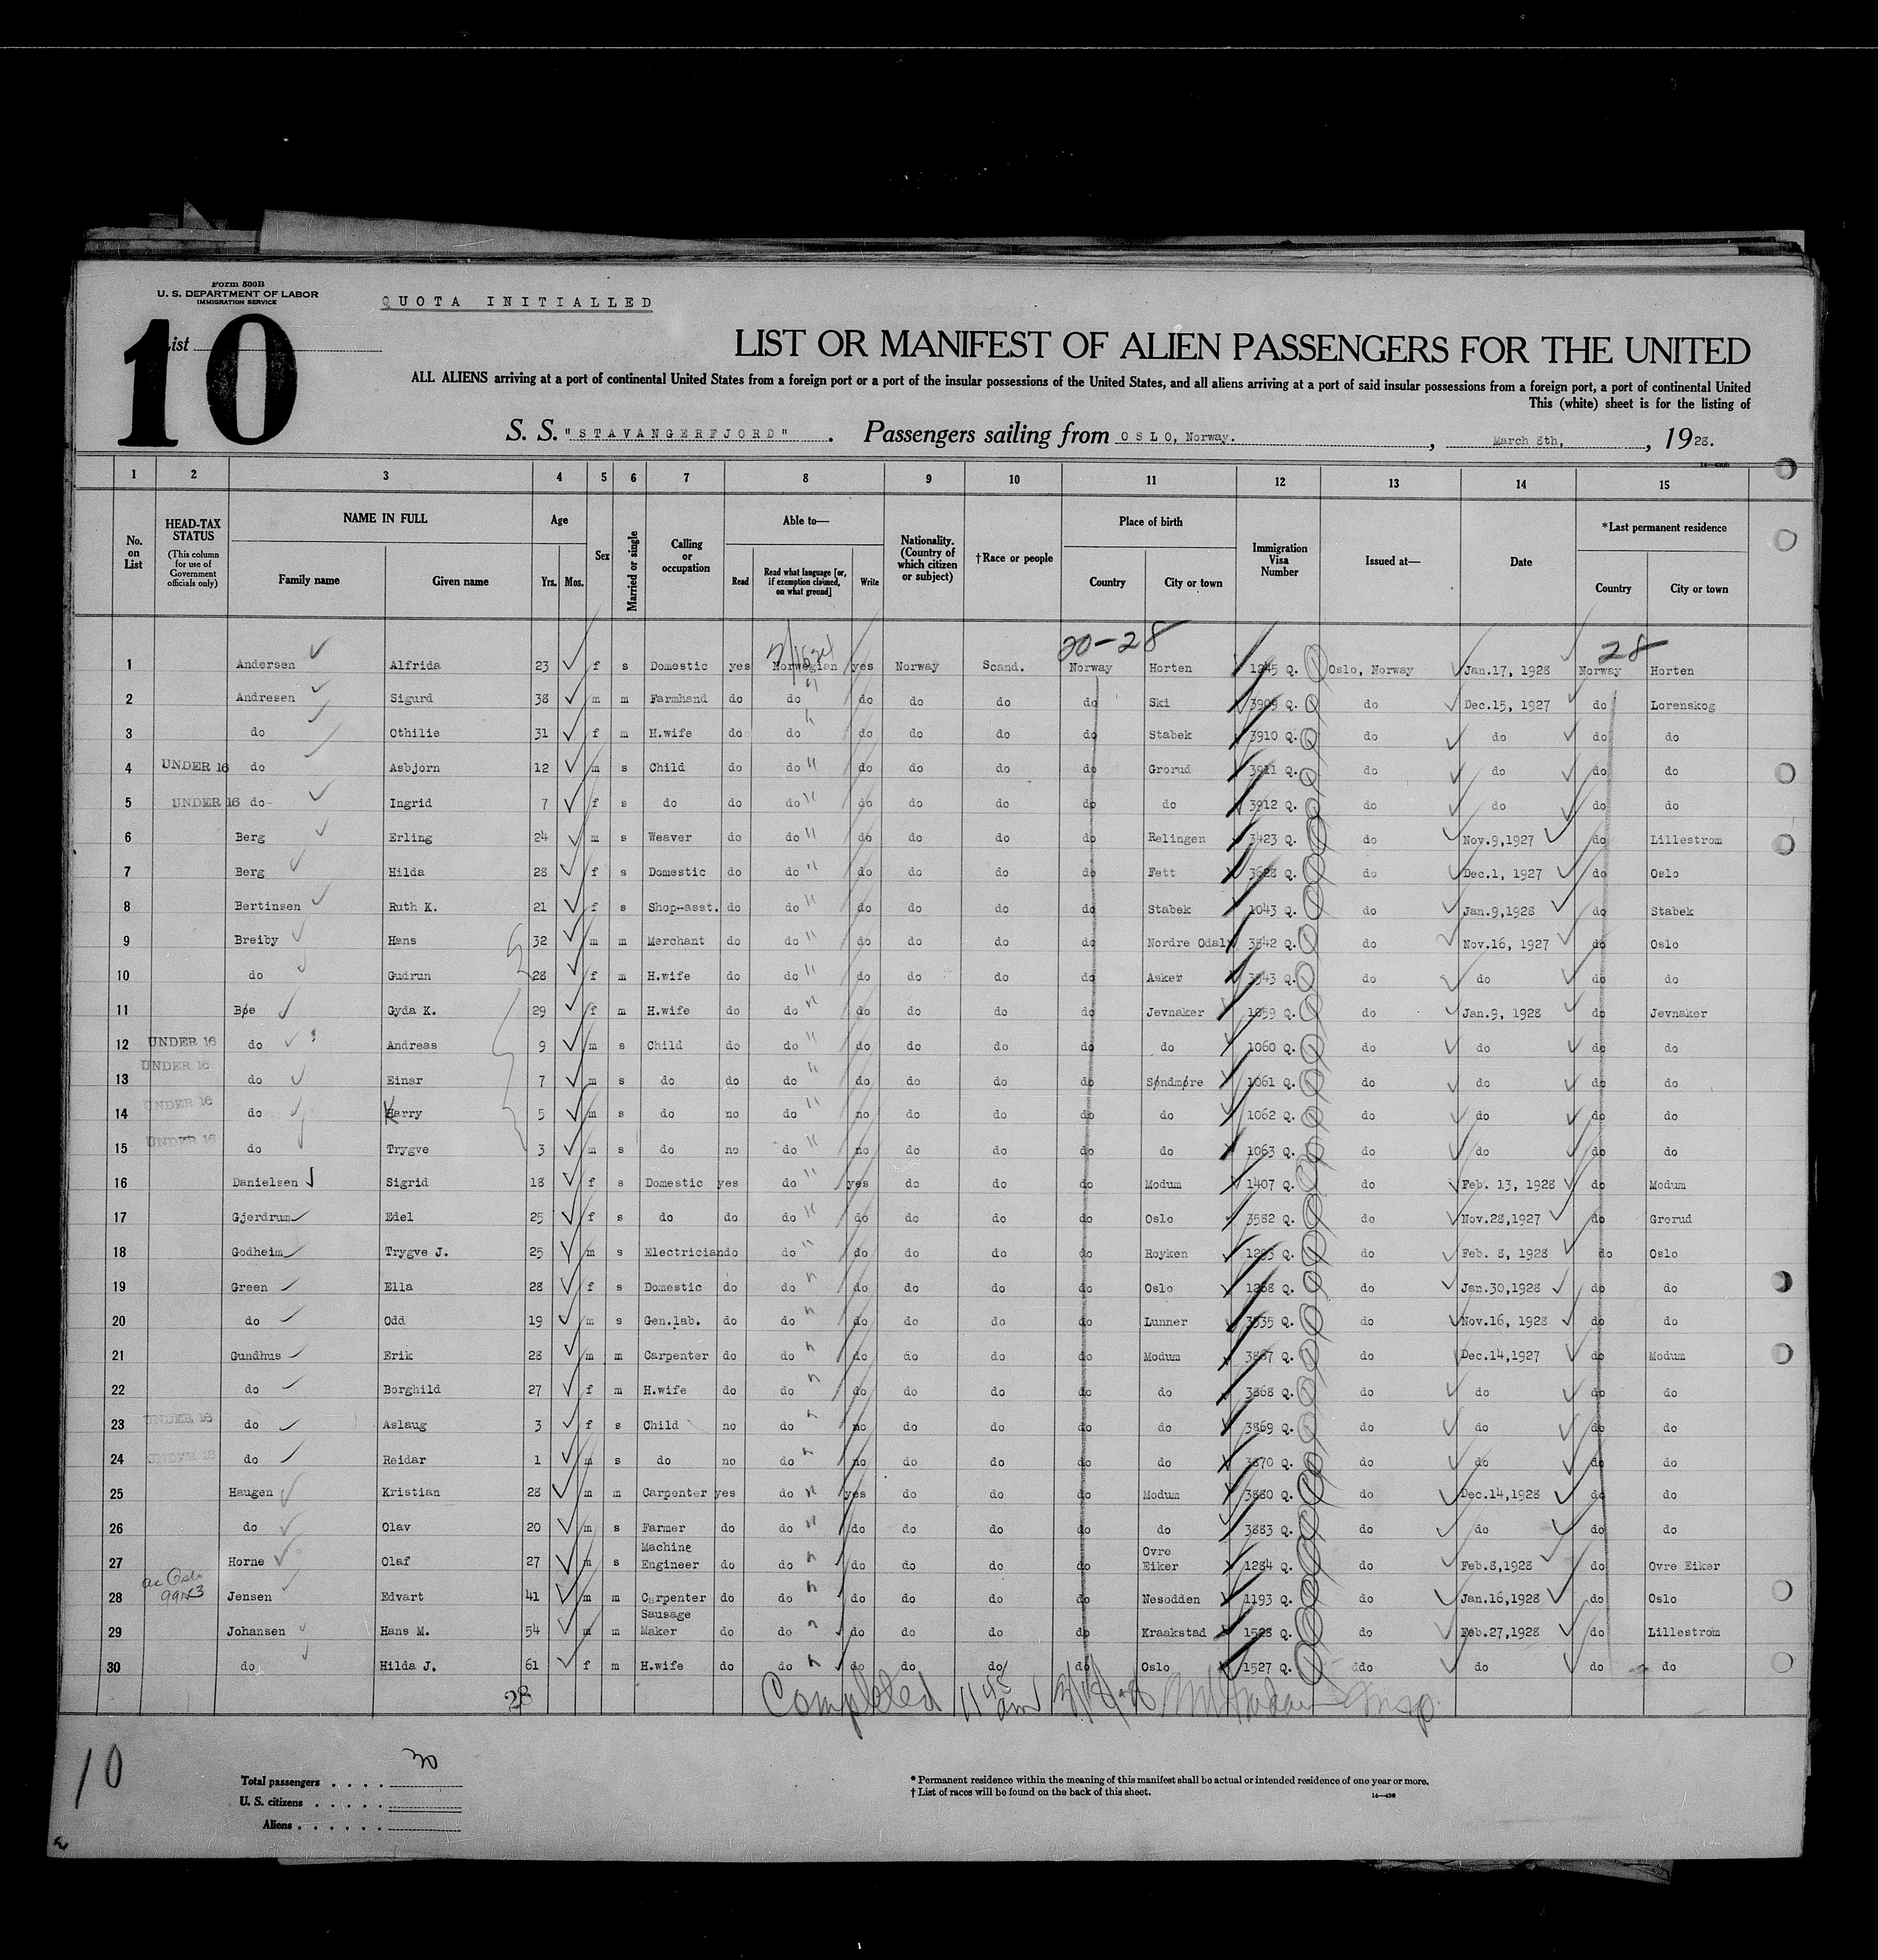 Form 500B
U. S. DEPARTMENT OF LABOR
IMMIGRATION SERVICE
QUOTA INITIALLED
List
10
LIST OR MANIFEST OF ALIEN PASSENGERS FOR THE UNITED
ALL ALIENS arriving at a port of continental United States from a foreign port or a port of the insular possessions of the United States, and all aliens arriving at a port of said insular possessions from a foreign port, a port of continental United
This (white) sheet is for the listing of
S. S. "STAVANGERFJORD". Passengers sailing from OSLO, Norway. , March 8th, , 1928.
1 2 3 4 5 6 7 8 9 10 11 12 13 14 15
No. on List
HEAD-TAX STATUS (This column for use of Government officials only)
NAME IN FULL Family name Given name
Age Yrs. Mos.
Sex
Married or single
Calling or occupation
Able to— Read Read what language [or, if exemption claimed, on what ground] Write
Nationality. (Country of which citizen or subject)
†Race or people
Place of birth Country City or town
Immigration Visa Number
Issued at—
Date
*Last permanent residence Country City or town
20-28 28
1 Andersen Alfrida 23 f s Domestic yes Norwegian yes Norway Scand. Norway Horten 1245 Q. Oslo, Norway Jan.17, 1928 Norway Horten
2 Andresen Sigurd 38 m m Farmhand do do do do do do Ski 3909 Q. do Dec.15, 1927 do Lorenskog
3 do Othilie 31 f m H.wife do do do do do do Stabek 3910 Q. do do do do
4 UNDER 16 do Asbjorn 12 m s Child do do do do do do Grorud 3911 Q. do do do do
5 UNDER 16 do Ingrid 7 f s do do do do do do do do 3912 Q. do do do do
6 Berg Erling 24 m s Weaver do do do do do do Relingen 3423 Q. do Nov.9,1927 do Lillestrom
7 Berg Hilda 28 f s Domestic do do do do do do Fett 3628 Q. do Dec.1, 1927 do Oslo
8 Bertinsen Ruth K. 21 f s Shop-asst. do do do do do do Stabek 1043 Q. do Jan.9,1928 do Stabek
9 Breiby Hans 32 m m Merchant do do do do do do Nordre Odal 3542 Q. do Nov.16, 1927 do Oslo
10 do Gudrun 28 f m H.wife do do do do do do Asker 3543 Q. do do do do
11 Bøe Gyda K. 29 f m H.wife do do do do do do Jevnaker 1059 Q. do Jan.9, 1928 do Jevnaker
12 UNDER 16 do Andreas 9 m s Child do do do do do do do 1060 Q. do do do do
13 UNDER 16 do Einar 7 m s do do do do do do do Søndmøre 1061 Q. do do do do
14 UNDER 16 do Harry 5 m s do no do no do do do do 1062 Q. do do do do
15 UNDER 16 do Trygve 3 m s do no do no do do do do 1063 Q. do do do do
16 Danielsen Sigrid 18 f s Domestic yes do yes do do do Modum 1407 Q. do Feb. 13, 1928 do Modum
17 Gjerdrum Edel 25 f s do do do do do do do Oslo 3582 Q. do Nov.28,1927 do Grorud
18 Godheim Trygve J. 25 m s Electrician do do do do do do Royken 1293 Q. do Feb. 8, 1928 do Oslo
19 Green Ella 28 f s Domestic do do do do do do Oslo 1268 Q. do Jan.30,1928 do do
20 do Odd 19 m s Gen.lab. do do do do do do Lunner 3535 Q. do Nov.16, 1928 do do
21 Gundhus Erik 28 m m Carpenter do do do do do do Modum 3867 Q. do Dec.14,1927 do Modum
22 do Borghild 27 f m H.wife do do do do do do do 3868 Q. do do do do
23 UNDER 16 do Aslaug 3 f s Child no do no do do do do 3869 Q. do do do do
24 UNDER 16 do Reidar 1 m s do no do no do do do do 3870 Q. do do do do
25 Haugen Kristian 28 m m Carpenter yes do yes do do do Modum 3880 Q. do Dec.14,1928 do do
26 do Olav 20 m s Farmer do do do do do do do 3883 Q. do do do do
27 Horne Olaf 27 m s Machine Engineer do do do do do do Ovre Eiker 1284 Q. do Feb.8,1928 do Ovre Eiker
28 Jensen Edvart 41 m m Carpenter do do do do do do Nesodden 1193 Q. do Jan.16,1928 do Oslo
29 Johansen Hans M. 54 m m Sausage Maker do do do do do do Kraakstad 1528 Q. do Feb.27,1928 do Lillestrom
30 do Hilda J. 61 f m H.wife do do do do do do Oslo 1527 Q. do do do do
28 Completed 11 45 am
10
Total passengers . . . . 30
U. S. citizens . . . . .
Aliens . . . . . .
* Permanent residence within the meaning of this manifest shall be actual or intended residence of one year or more.
† List of races will be found on the back of this sheet.
14—430